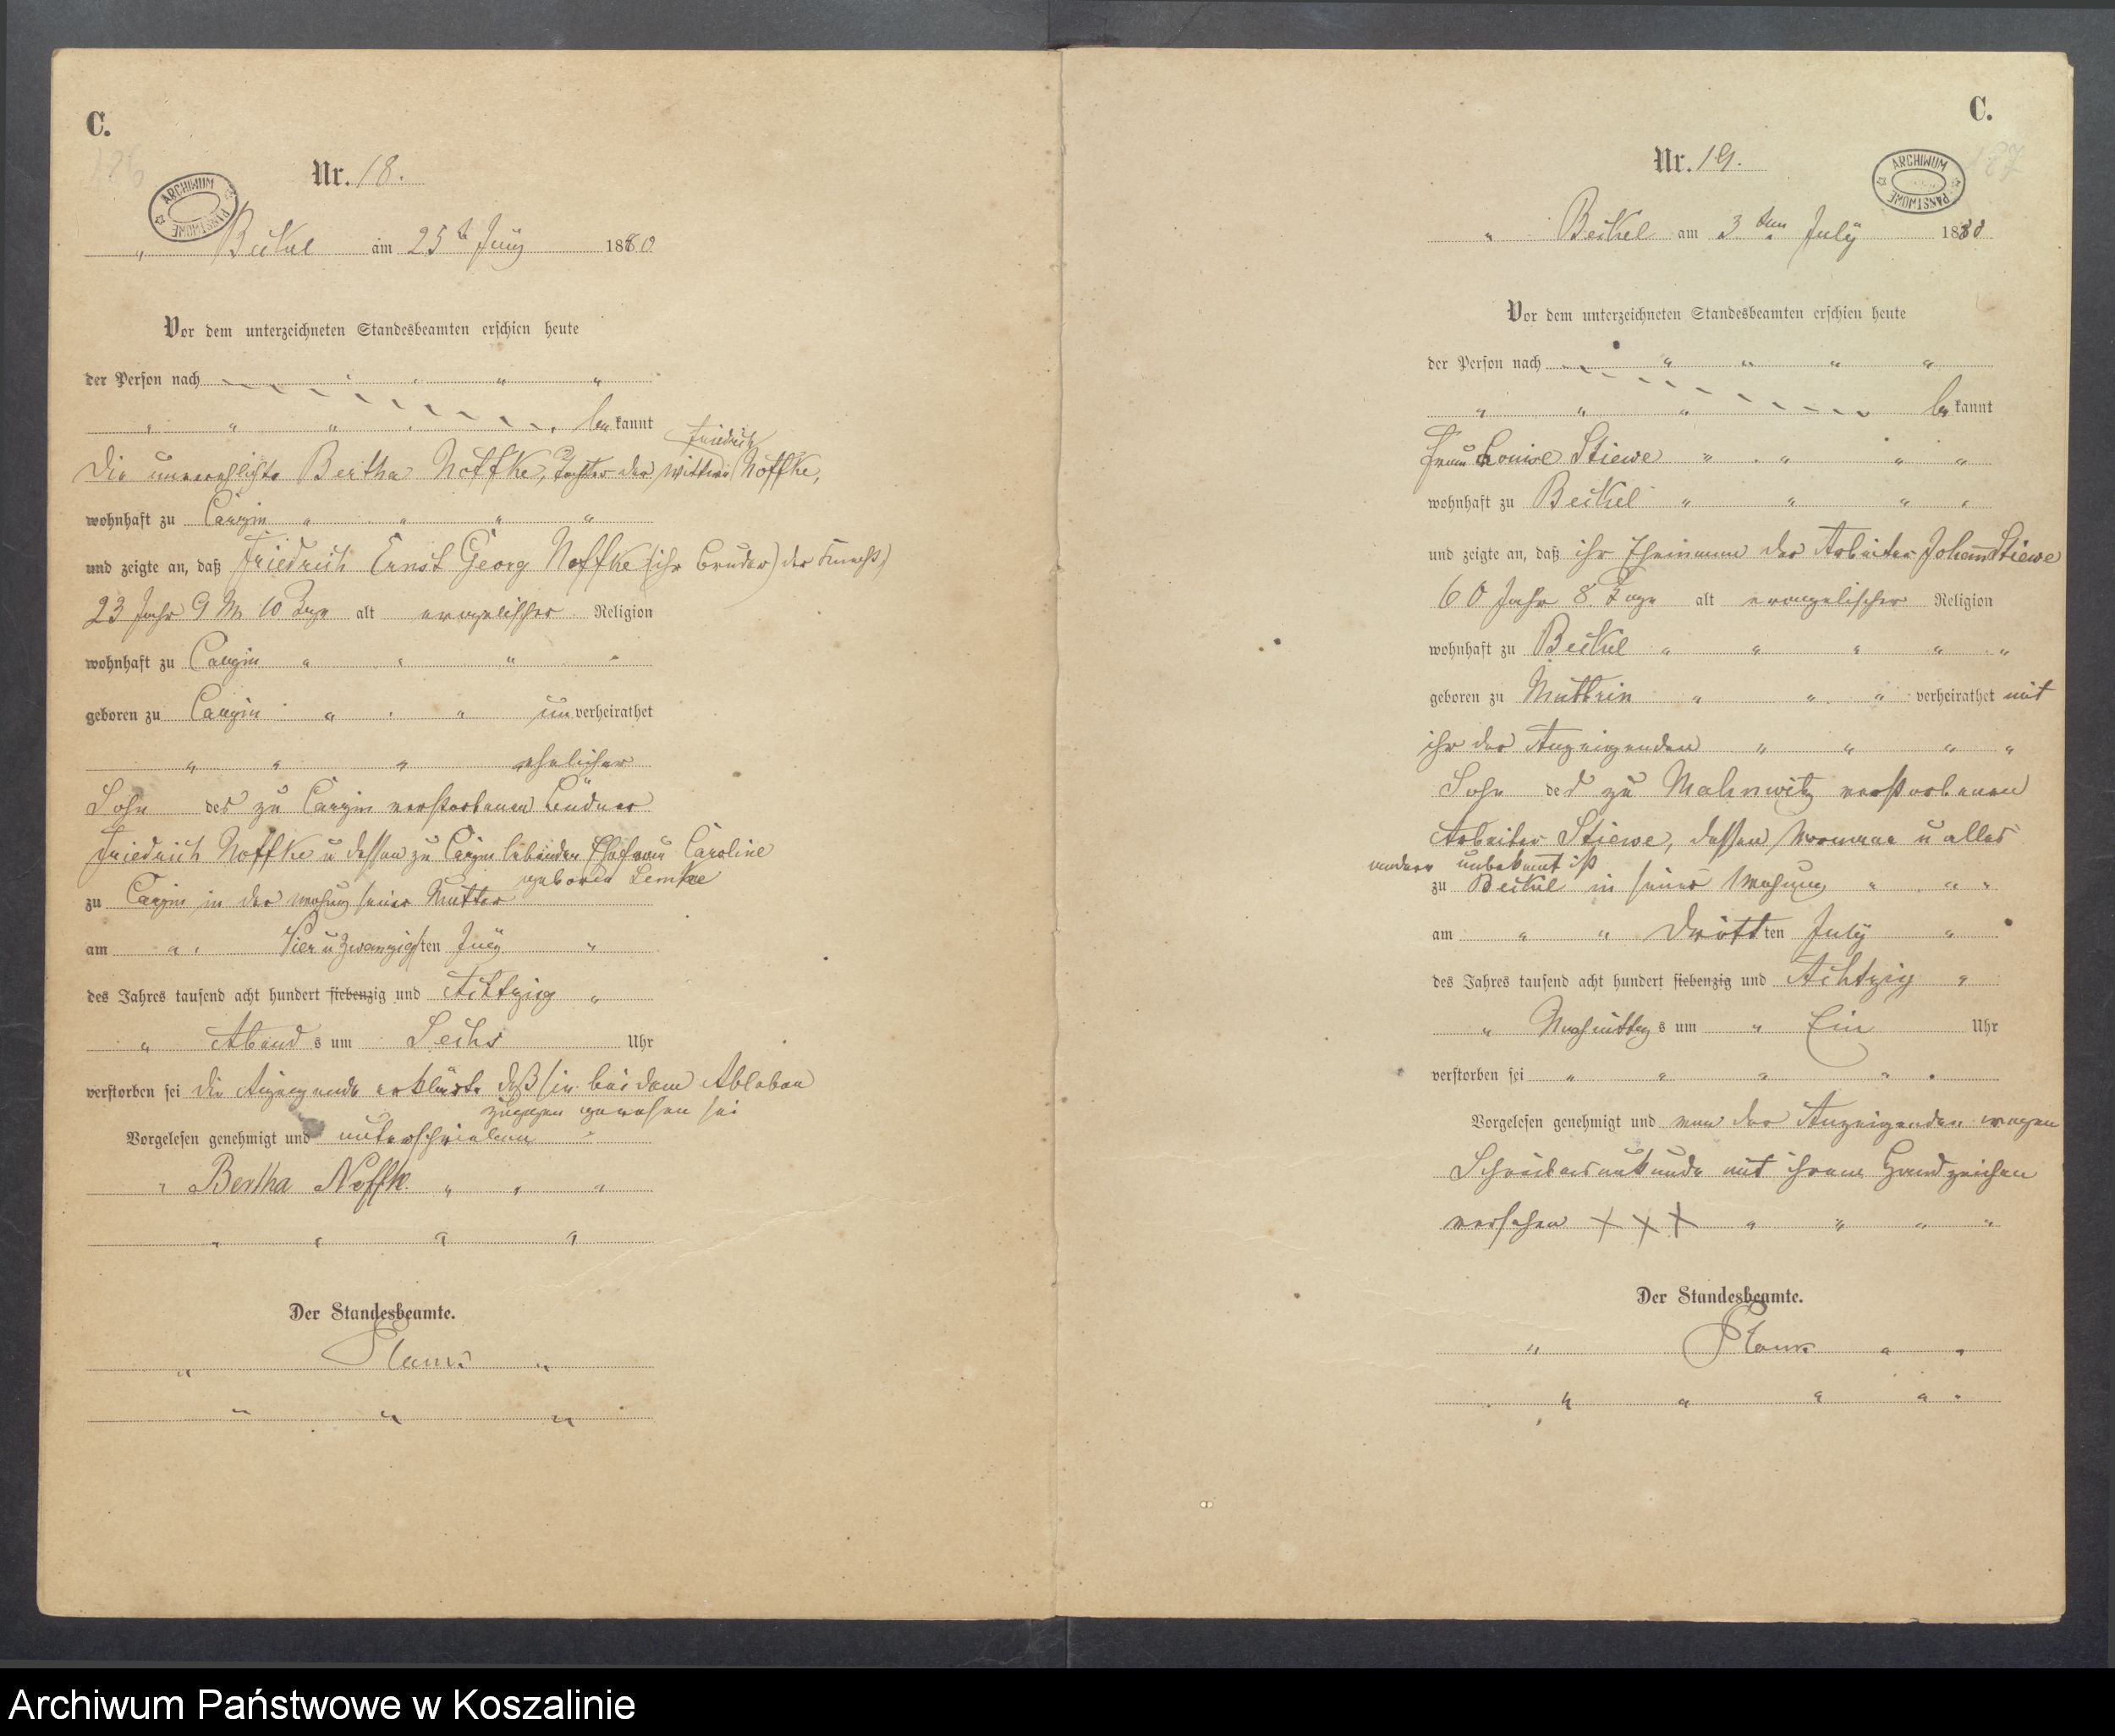 C.
Nr. 18.
ARCHIWUM PAŃSTWOWE
" Beckel am 25t Juny 1880
Vor dem unterzeichneten Standesbeamten erschien heute
der Person nach " "
" " " " be kannt
Friedrich
Die unverehlichte Bertha Noffke, Tochter der Wittwe Noffke,
wohnhaft zu Carzin " " " "
und zeigte an, daß Friedrich Ernst Georg Noffke (ihr Bruder) der Knecht,
23 Jahr 9 M 10 Tage alt evangelischer Religion
wohnhaft zu Carzin " " " "
geboren zu Carzin " " " un verheirathet
" " " ehelicher
Sohn des zu Carzin verstorbenen Büdner
Friedrich Noffke u dessen zu Carzin lebenden Ehefrau Caroline
geboren Lemke
zu Carzin in der Wohnung seiner Mutter
am " " Vier u Zwanzigsten Juny "
des Jahres tausend acht hundert siebenzig und Achtzig "
" Abend s um Sechs Uhr
verstorben sei die Anzeigende erklärte daß sie bei dem Ableben
zugegen gewesen sei
Vorgelesen genehmigt und unterschrieben "
" Bertha Noffke " " "
" " " "
Der Standesbeamte.
" "
" " "
C.
Nr. 19.
ARCHIWUM PAŃSTWOWE
" Beckel am 3ten July 1880
Vor dem unterzeichneten Standesbeamten erschien heute
der Person nach " " " "
" " " be kannt
Frau Louise Stiewe " " " "
wohnhaft zu Beckel " " " "
und zeigte an, daß ihr Ehemann der Arbeiter Johann Stiewe
60 Jahr 8 Tage alt evangelischer Religion
wohnhaft zu Beckel " " " " "
geboren zu Muttrin " " " verheirathet mit
ihr der Anzeigenden " " " "
Sohn des zu Mahnwitz verstorbenen
Arbeiter Stiewe, dessen Vorname u alles
andere unbekannt ist
zu Beckel in seiner Wohnung " " "
am " " Dritt ten July "
des Jahres tausend acht hundert siebenzig und Achtzig "
" Nachmittag s um " Ein Uhr
verstorben sei " " " " "
Vorgelesen genehmigt und von der Anzeigenden wegen
Schreibensunkunde mit ihrem Handzeichen
versehen X X X " " " "
Der Standesbeamte.
" " "
" " " " "
Archiwum Państwowe w Koszalinie